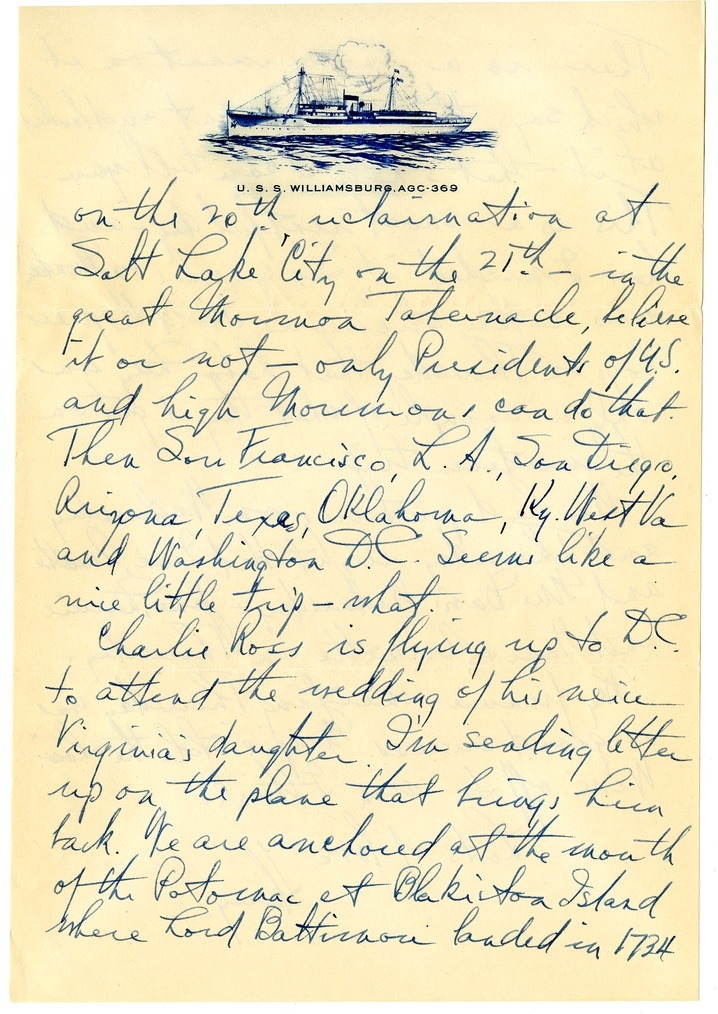 U. S. S. WILLIAMSBURG, AGC-369
on the 20th reclaimation at
Salt Lake City on the 21th - in the
great Mormon Tabernacle, believe
it or not - only Presidents of U.S.
and high Mormons can do that.
Then San Francisco, L. A., San Diego,
Arizona, Texas, Oklahoma, Ky. West Va
and Washington D.C. Seems like a
nice little trip - what.
Charlie Ross is flying up to D.C.
to attend the wedding of his neice
Virginia's daughter. I'm sending letter
up on the plane that brings him
back. We are anchored at the mouth
of the Potomac at Blakiston Island
where Lord Baltimore landed in 1734